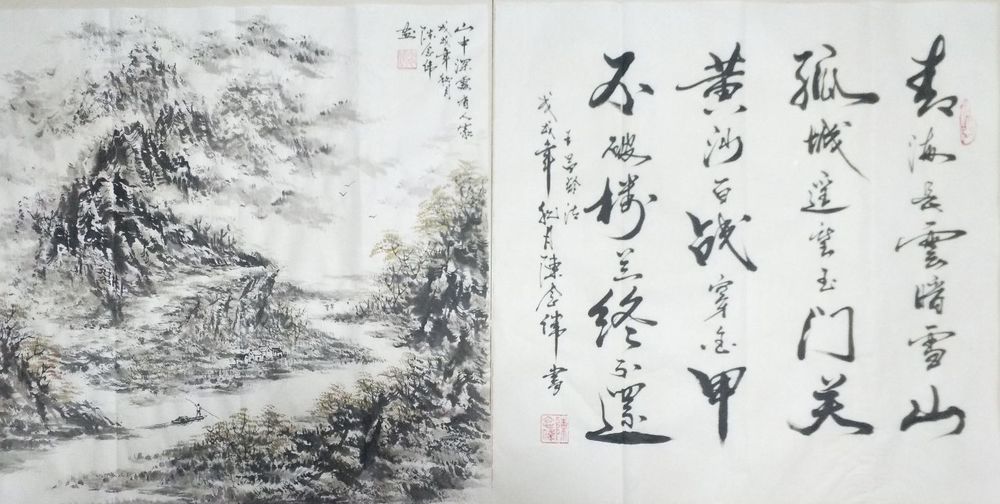 青海长雲暗雪山
孤城遥望玉门关
黄沙百战穿金甲
不破楼兰终不還
王昌龄诗
戊戌年秋月陳念書
山中深處有人家
戊戌年秋月
陳念
画